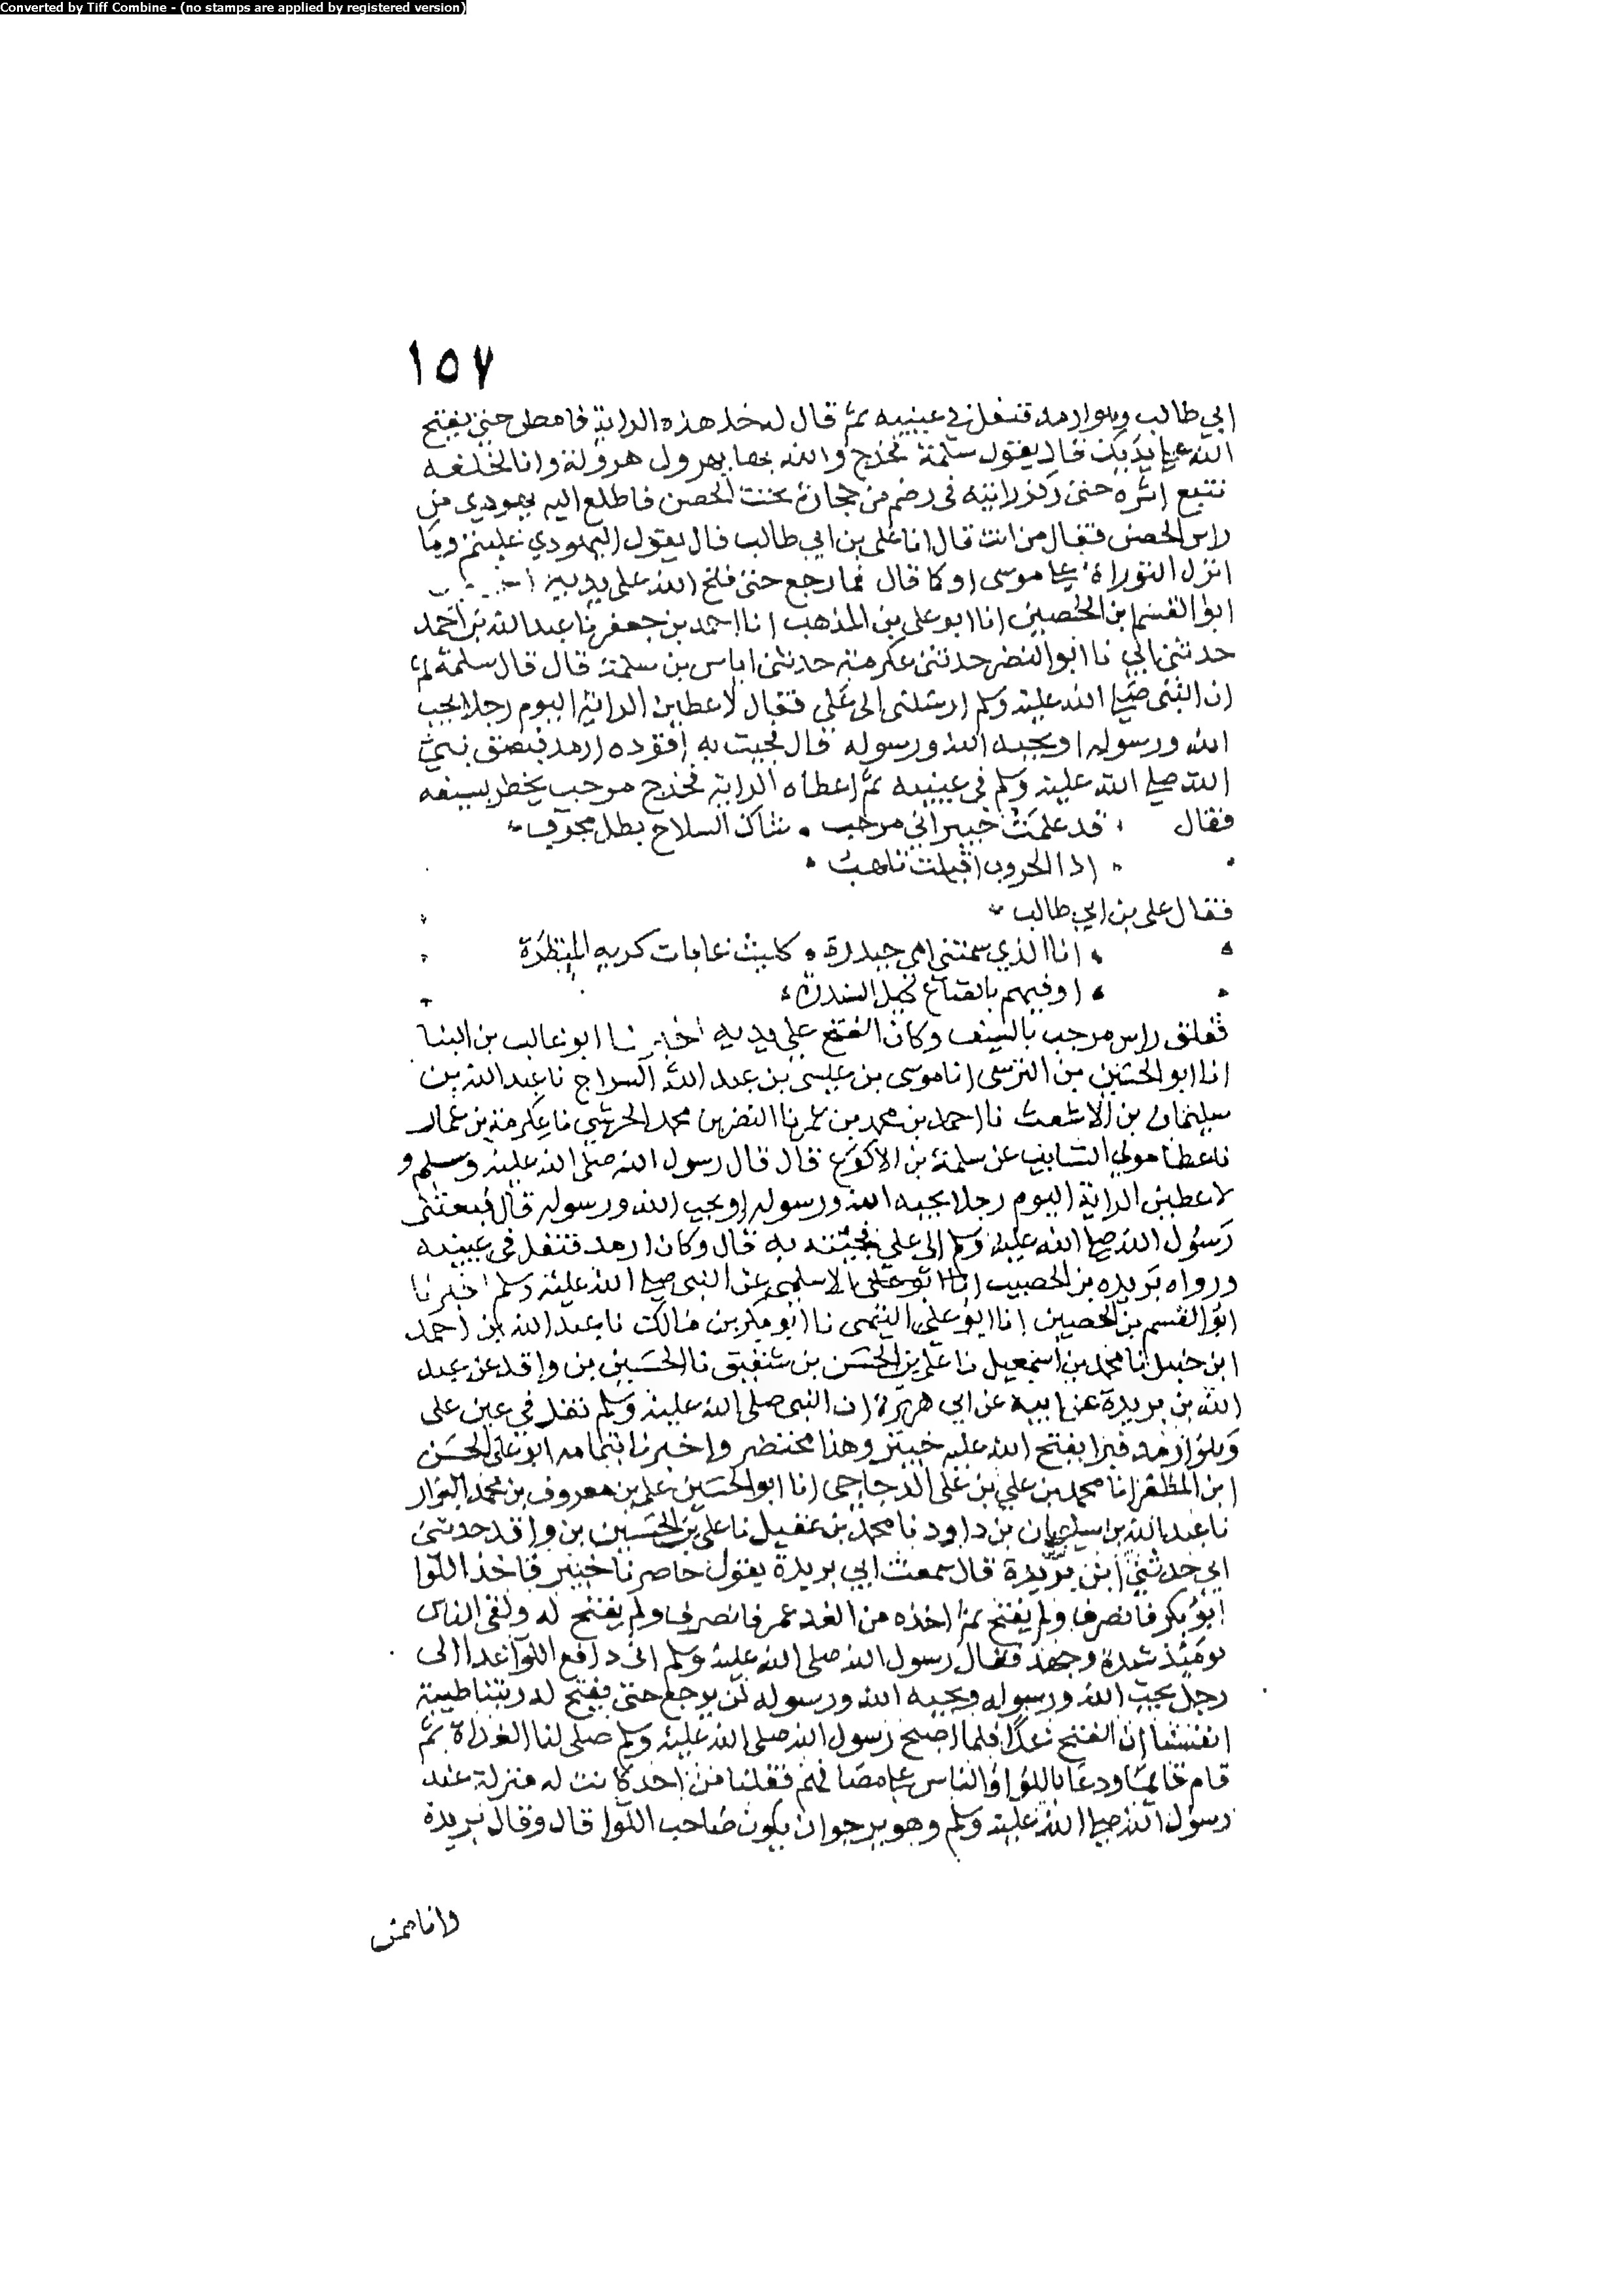 Converted by Tiff Combine - (no stamps are applied by registered version)
١٥٧
ابي طالب وهو ارمد فتفل في عينيه ثم قال له خذ هذه الراية فامض حتى يفتح
الله على يديك قال يقول سلمة فخرج والله بها يهرول هرولة وانا لخلفه
نتبع اثره حتى ركز رايته في رضم من حجارة تحت الحصن فاطلع اليه يهودي من
راس الحصن فقال من انت قال انا على بن ابي طالب قال يقول اليهودي غلبتم وما
انزل التوراة على موسى او كما قال فما رجع حتى فتح الله على يديه
ابو القسم بن الحصين انا ابو على بن المذهب انا احمد بن جعفر نا عبد الله بن احمد
حدثنى ابي نا ابو النضر حدثنى عكرمة حدثنى اياس بن سلمة قال قال سلمة
ان النبى صلى الله عليه وسلم ارسلنى الى على فقال لاعطين الراية اليوم رجلا يحب
الله ورسوله او يحبه الله ورسوله قال فجيت به اقوده ارمد فبصق نبي
الله صلى الله عليه وسلم في عينيه ثم اعطاه الراية فخرج مرحب يخطر بسيفه
فقال قد علمت خيبر اني مرحب • شاك السلاح بطل مجرب
اذا الحروب اقبلت تلهب
فقال على بن ابي طالب
انا الذي سمتني امي حيدرة • كليث غابات كريه المنظرة
اوفيهم بالصاع كيل السندرة
ففلق راس مرحب بالسيف وكان الفتح على يديه اخبرنا ابو غالب بن البنا
انا ابو الحسين بن النرسى انا موسى بن عيسى بن عبد الله السراج نا عبد الله بن
سليمان بن الاشعث نا احمد بن محمد بن عمر نا النضر بن محمد الجرشي نا عكرمة بن عمار
نا عطا مولى السايب عن سلمة بن الاكوع قال قال رسول الله صلى الله عليه وسلم
لاعطين الراية اليوم رجلا يحبه الله ورسوله او يحب الله ورسوله قال فبعثنى
رسول الله صلى الله عليه وسلم الى على فجيته به قال وكان ارمد فتفل في عينيه
ورواه بريده بن الحصيب الاسلمى عن النبى صلى الله عليه وسلم اخبرنا
ابو القسم بن الحصين انا ابو على التيمى نا ابو بكر بن مالك نا عبد الله بن احمد
ابن حنبل نا محمد بن اسمعيل نا على بن الحسن بن شقيق نا الحسين بن واقد عن عبد
الله بن بريدة عن ابيه عن ابي هريرة ان النبى صلى الله عليه وسلم تفل في عين على
وهو ارمد فبرا بفتح الله عليه خيبر وهذا مختصر واخبرنا بتمامه ابو على الحسن
ابن المظفر انا محمد بن علي بن على الدجاجى انا ابو الحسين على بن معروف بن محمد البزار
نا عبد الله بن سليمان بن داود نا محمد بن عقيل نا على بن الحسين بن واقد حدثنى
ابي حدثنى ابن بريدة قال سمعت ابي بريدة يقول حاصرنا خيبر فاخذ اللوا
ابو بكر فانصرف ولم يفتح ثم اخذه من الغد عمر فانصرف ولم يفتح له ولقى الناس
يومئذ شدة وجهد فقال رسول الله صلى الله عليه وسلم انى دافع اللوا غدا الى
رجل يحب الله ورسوله ويحبه الله ورسوله لن يرجع حتى يفتح له وبتنا طيبة
انفسنا ان الفتح غدا فلما اصبح رسول الله صلى الله عليه وسلم صلى لنا الغداة ثم
قام قائما ودعا باللوا والناس على مصافهم فقلنا من احد كانت له منزلة عند
رسول الله صلى الله عليه وسلم وهو يرجوان يكون صاحب اللوا قال وقال بريدة
وانا ممن